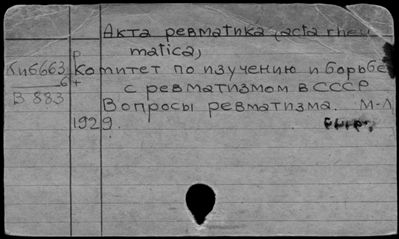 Акта ревматика (acta rheu
matica)
Р
Ки6663 Комитет по изучению и борьбе
6+ с ревматизмом в СССР
В 883 Вопросы ревматизма. М-Л
1929.